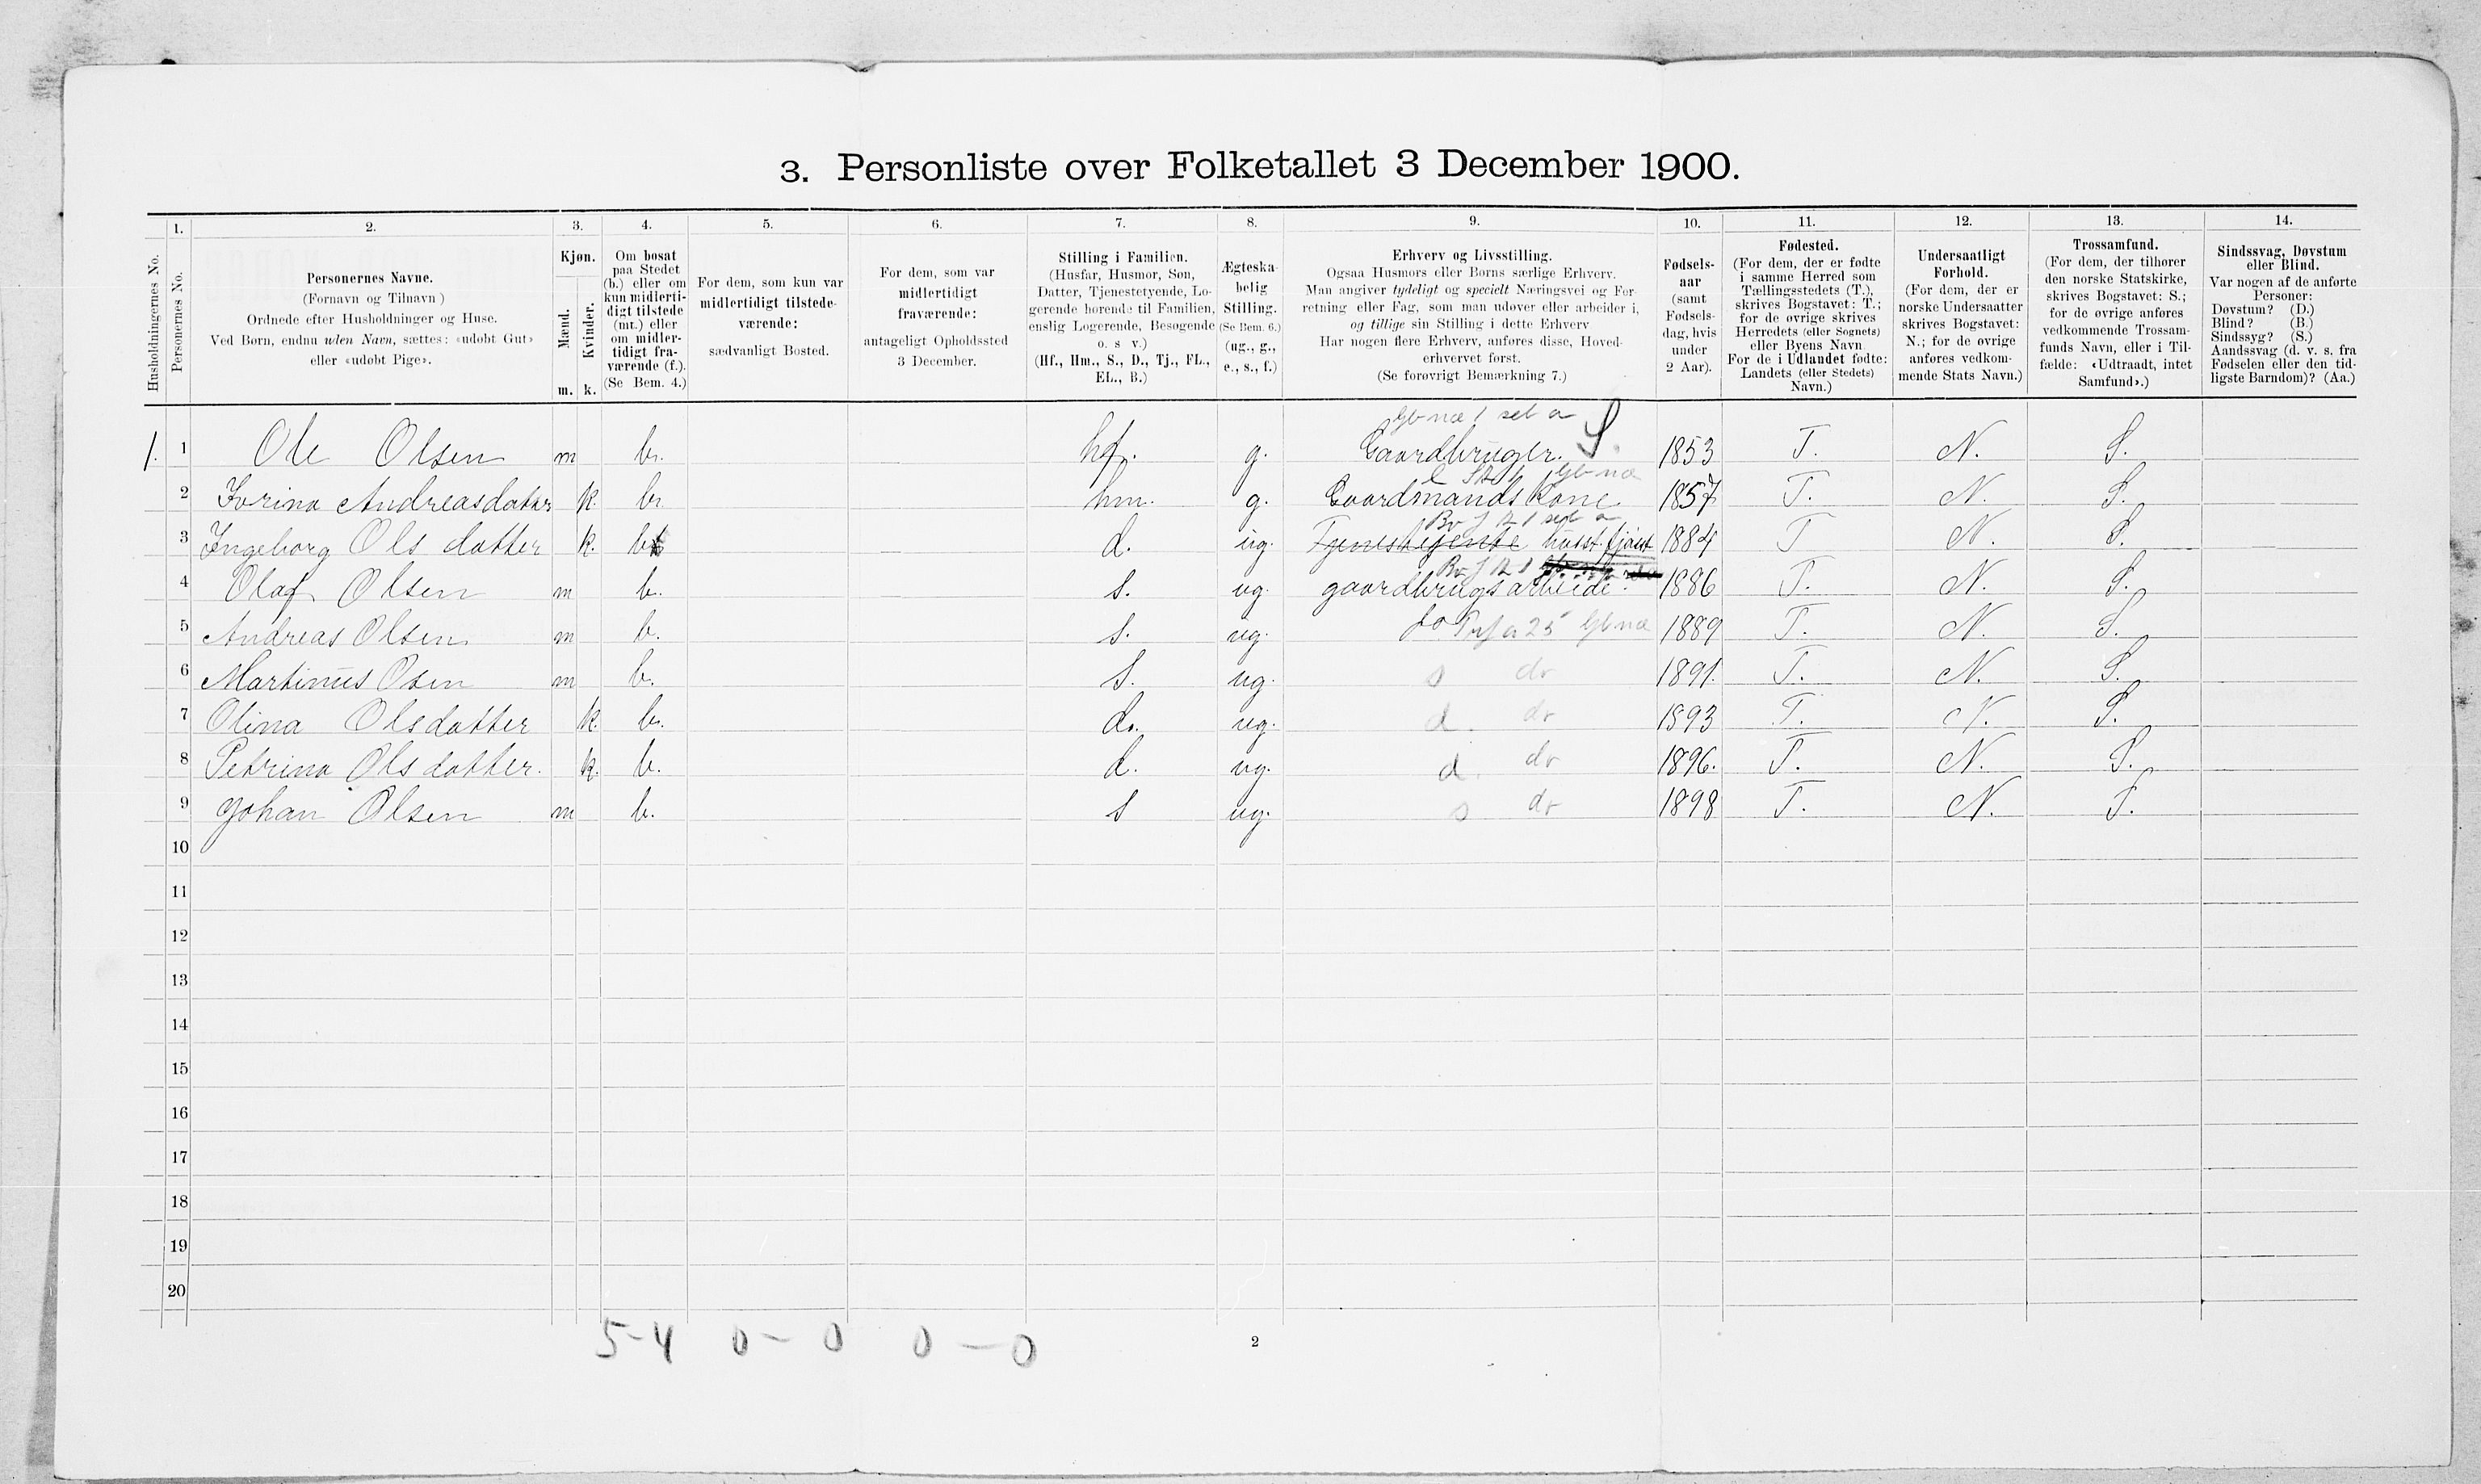 3. Personliste over Folketallet 3 December 1900.
Husholdningernes No.
1. Personernes No.
2.
Personernes Navne.
(Fornavn og Tilnavn)
Ordnede efter Husholdninger og Huse.
Ved Børn, endnu uden Navn, sættes: «udøbt Gut»
eller «udøbt Pige».
3.
Kjøn.
Mænd. Kvinder.
m. k.
4.
Om bosat
paa Stedet
(b.) eller om
kun midlerti-
digt tilstede
(mt.) eller
om midler-
tidigt fra-
værende (f.).
(Se Bem. 4.)
5.
For dem, som kun var
midlertidigt tilstede-
værende:
sædvanligt Bosted.
6.
For dem, som var
midlertidigt
fraværende:
antageligt Opholdssted
3 December.
7.
Stilling i Familien.
(Husfar, Husmor, Søn,
Datter, Tjenestetyende, Lo-
gerende hørende til Familien,
enslig Logerende, Besøgende
o. s v.)
(Hf., Hm., S., D., Tj., FL.,
EL., B.)
8.
Ægteska-
belig
Stilling.
(Se Bem. 6.)
(ug., g.,
e., s., f.)
9.
Erhverv og Livsstilling.
Ogsaa Husmors eller Børns særlige Erhverv.
Man angiver tydeligt og specielt Næringsvei og For-
retning eller Fag, som man udøver eller arbeider i,
og tillige sin Stilling i dette Erhverv
Har nogen flere Erhverv, anføres disse, Hoved-
erhvervet først.
(Se forøvrigt Bemærkning 7.)
10.
Fødsels-
aar
(samt
Fødsels-
dag, hvis
under
2 Aar).
11.
Fødested.
(For dem, der er fødte
i samme Herred som
Tællingsstedets (T.),
skrives Bogstavet: T.;
for de øvrige skrives
Herredets (eller Sognets)
eller Byens Navn
For de i Udlandet fødte:
Landets (eller Stedets)
Navn.)
12.
Undersaatligt
Forhold.
(For dem, der er
norske Undersaatter
skrives Bogstavet:
N.; for de øvrige
anføres vedkom-
mende Stats Navn.)
13.
Trossamfund.
(For dem, der tilhører
den norske Statskirke,
skrives Bogstavet: S.;
for de øvrige anføres
vedkommende Trossam-
funds Navn, eller i Til-
fælde: «Udtraadt, intet
Samfund».)
14.
Sindssvag, Døvstum
eller Blind.
Var nogen af de anførte
Personer:
Døvstum? (D.)
Blind? (B.)
Sindssyg? (S.)
Aandssvag (d. v. s. fra
Fødselen eller den tid-
ligste Barndom)? (Aa.)
1. 1 Ole Olsen m b. hf. g. Gaardbruger. S. 1853 T. N. S.
2 Andreasdatter k. b. hm. g. Gaardmands Kone 1857 T. N. S.
3 Ingeborg Ols datter k. b d. ug. Tjenestejente 1884 T N. S.
4 Olaf Olsen m b. s. ug. gaardbrugsarbeide. 1886 T. N. S.
5 Andreas Olsen m b. s. ug. do 1889 T. N. S.
6 Martinus Osen m b. s. ug. s do 1891. T. N. S.
7 Olina Olsdatter k. b. d. ug. d. do 1893 T. N. S.
8 Petrina Ols datter. k. b. d. ug. d. do 1896. T. N. S.
9 Johan Olsen m b. s ug. s do 1898 T. N. S.
10
11
12
13
14
15
16
17
18
19
20
5-4 0-0 0-0
2